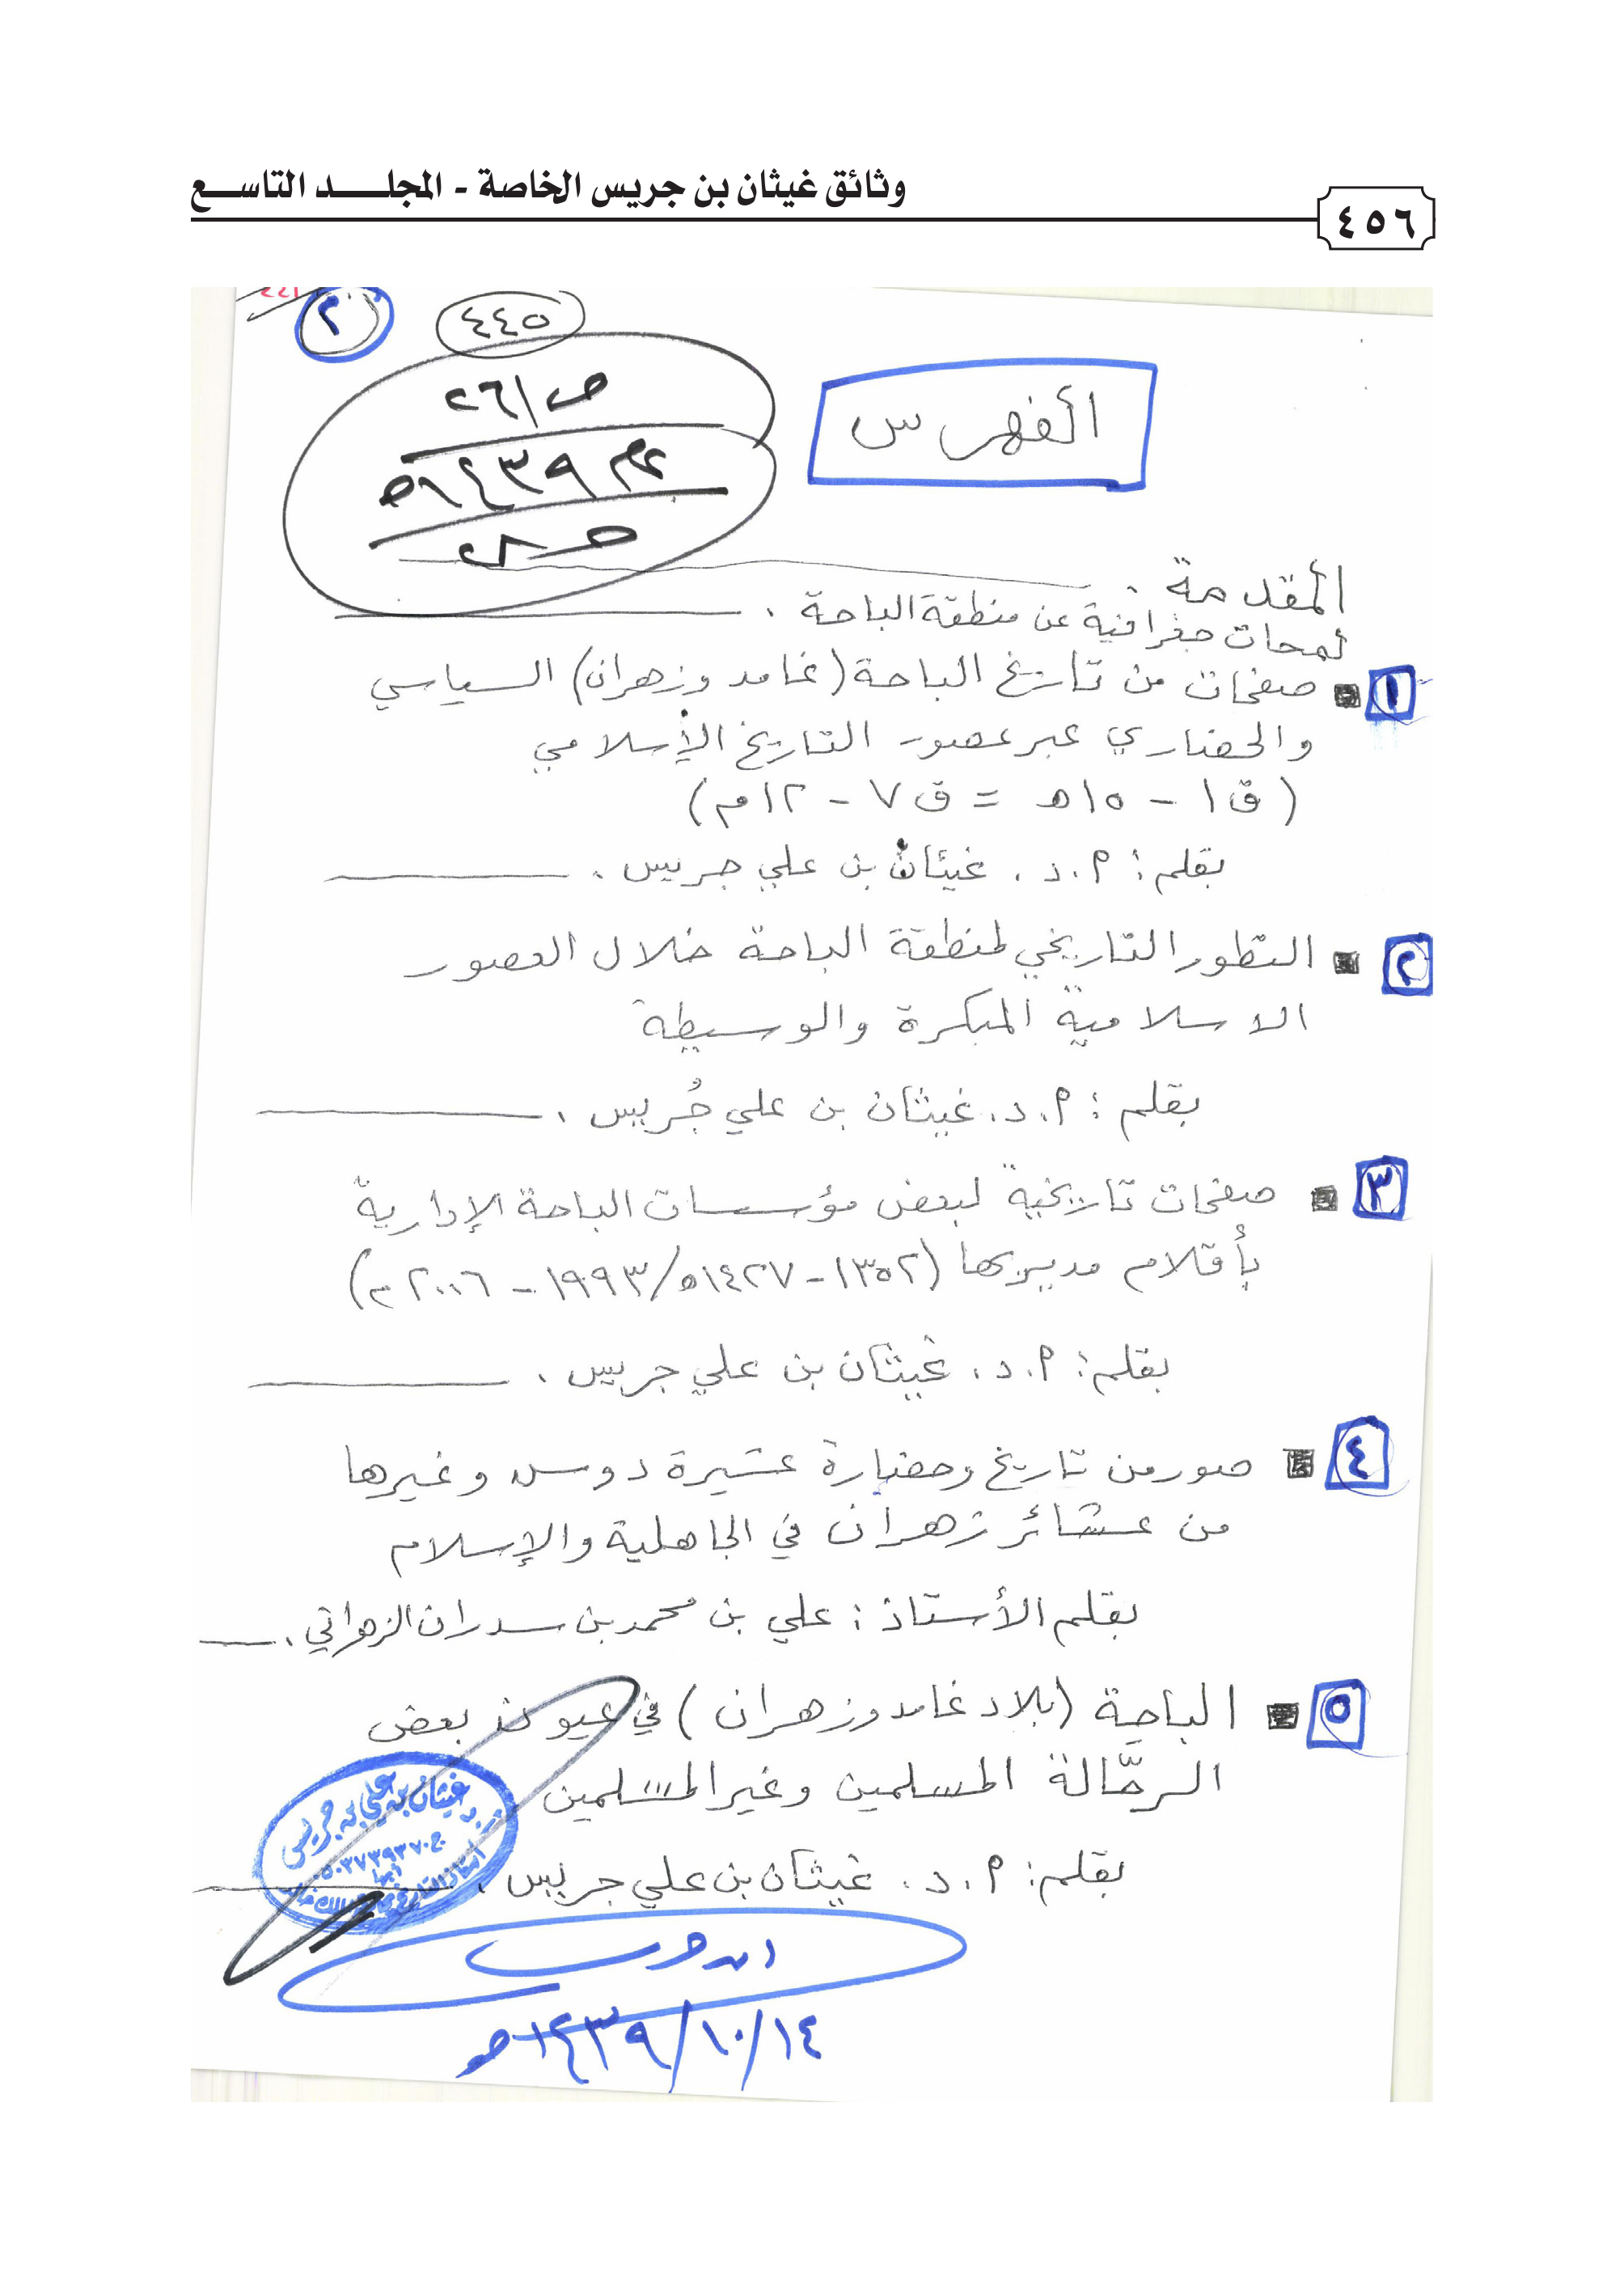 وثائق غيثان بن جريس الخاصة - المجلد التاسع
٤٥٦
٢
٤٤٥
ص/٢٦
عام ١٤٣٩هـ
الفهرس
المقدمة .
لمحات جغرافية عن منطقة الباحة .
١ صفحات من تاريخ الباحة (غامد وزهران) السياسي
والحضاري عبر عصور التاريخ الإسلامي
(ق١ - ١٥هـ = ق٧ - ٢١م)
بقلم : أ.د . غيثان بن علي جريس .
٢ التطور التاريخي لمنطقة الباحة خلال العصور
الاسلامية المبكرة والوسيطة
بقلم : أ.د. غيثان بن علي جُريس .
٣ صفحات تاريخية لبعض مؤسسات الباحة الإدارية
بأقلام مديريها (١٣٥٢-١٤٢٧هـ/١٩٩٣-٢٠٠٦م)
بقلم : أ.د. غيثان بن علي جريس .
٤ صور من تاريخ وحضارة عشيرة دوس وغيرها
من عشائر زهران في الجاهلية والإسلام
بقلم الأستاذ : علي بن محمد بن سدران الزهراني .
٥ الباحة (بلاد غامد وزهران) في عيون بعض
الرحّالة المسلمين وغير المسلمين
أ.د غيثان بن علي بن جريس
بقلم : أ.د . غيثان بن علي جريس .
ابن جريس
١٤/١٠/١٤٣٩هـ